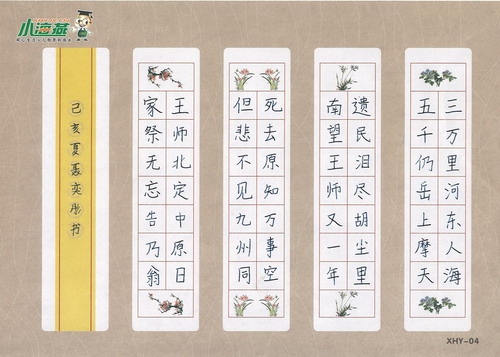 小海燕
三万里河东人海
五千仞岳上摩天
遗民泪尽胡尘里
南望王师又一年
死去原知万事空
但悲不见九州同
王师北定中原日
家祭无忘告乃翁
己亥夏聂奕彤书
XHY-04